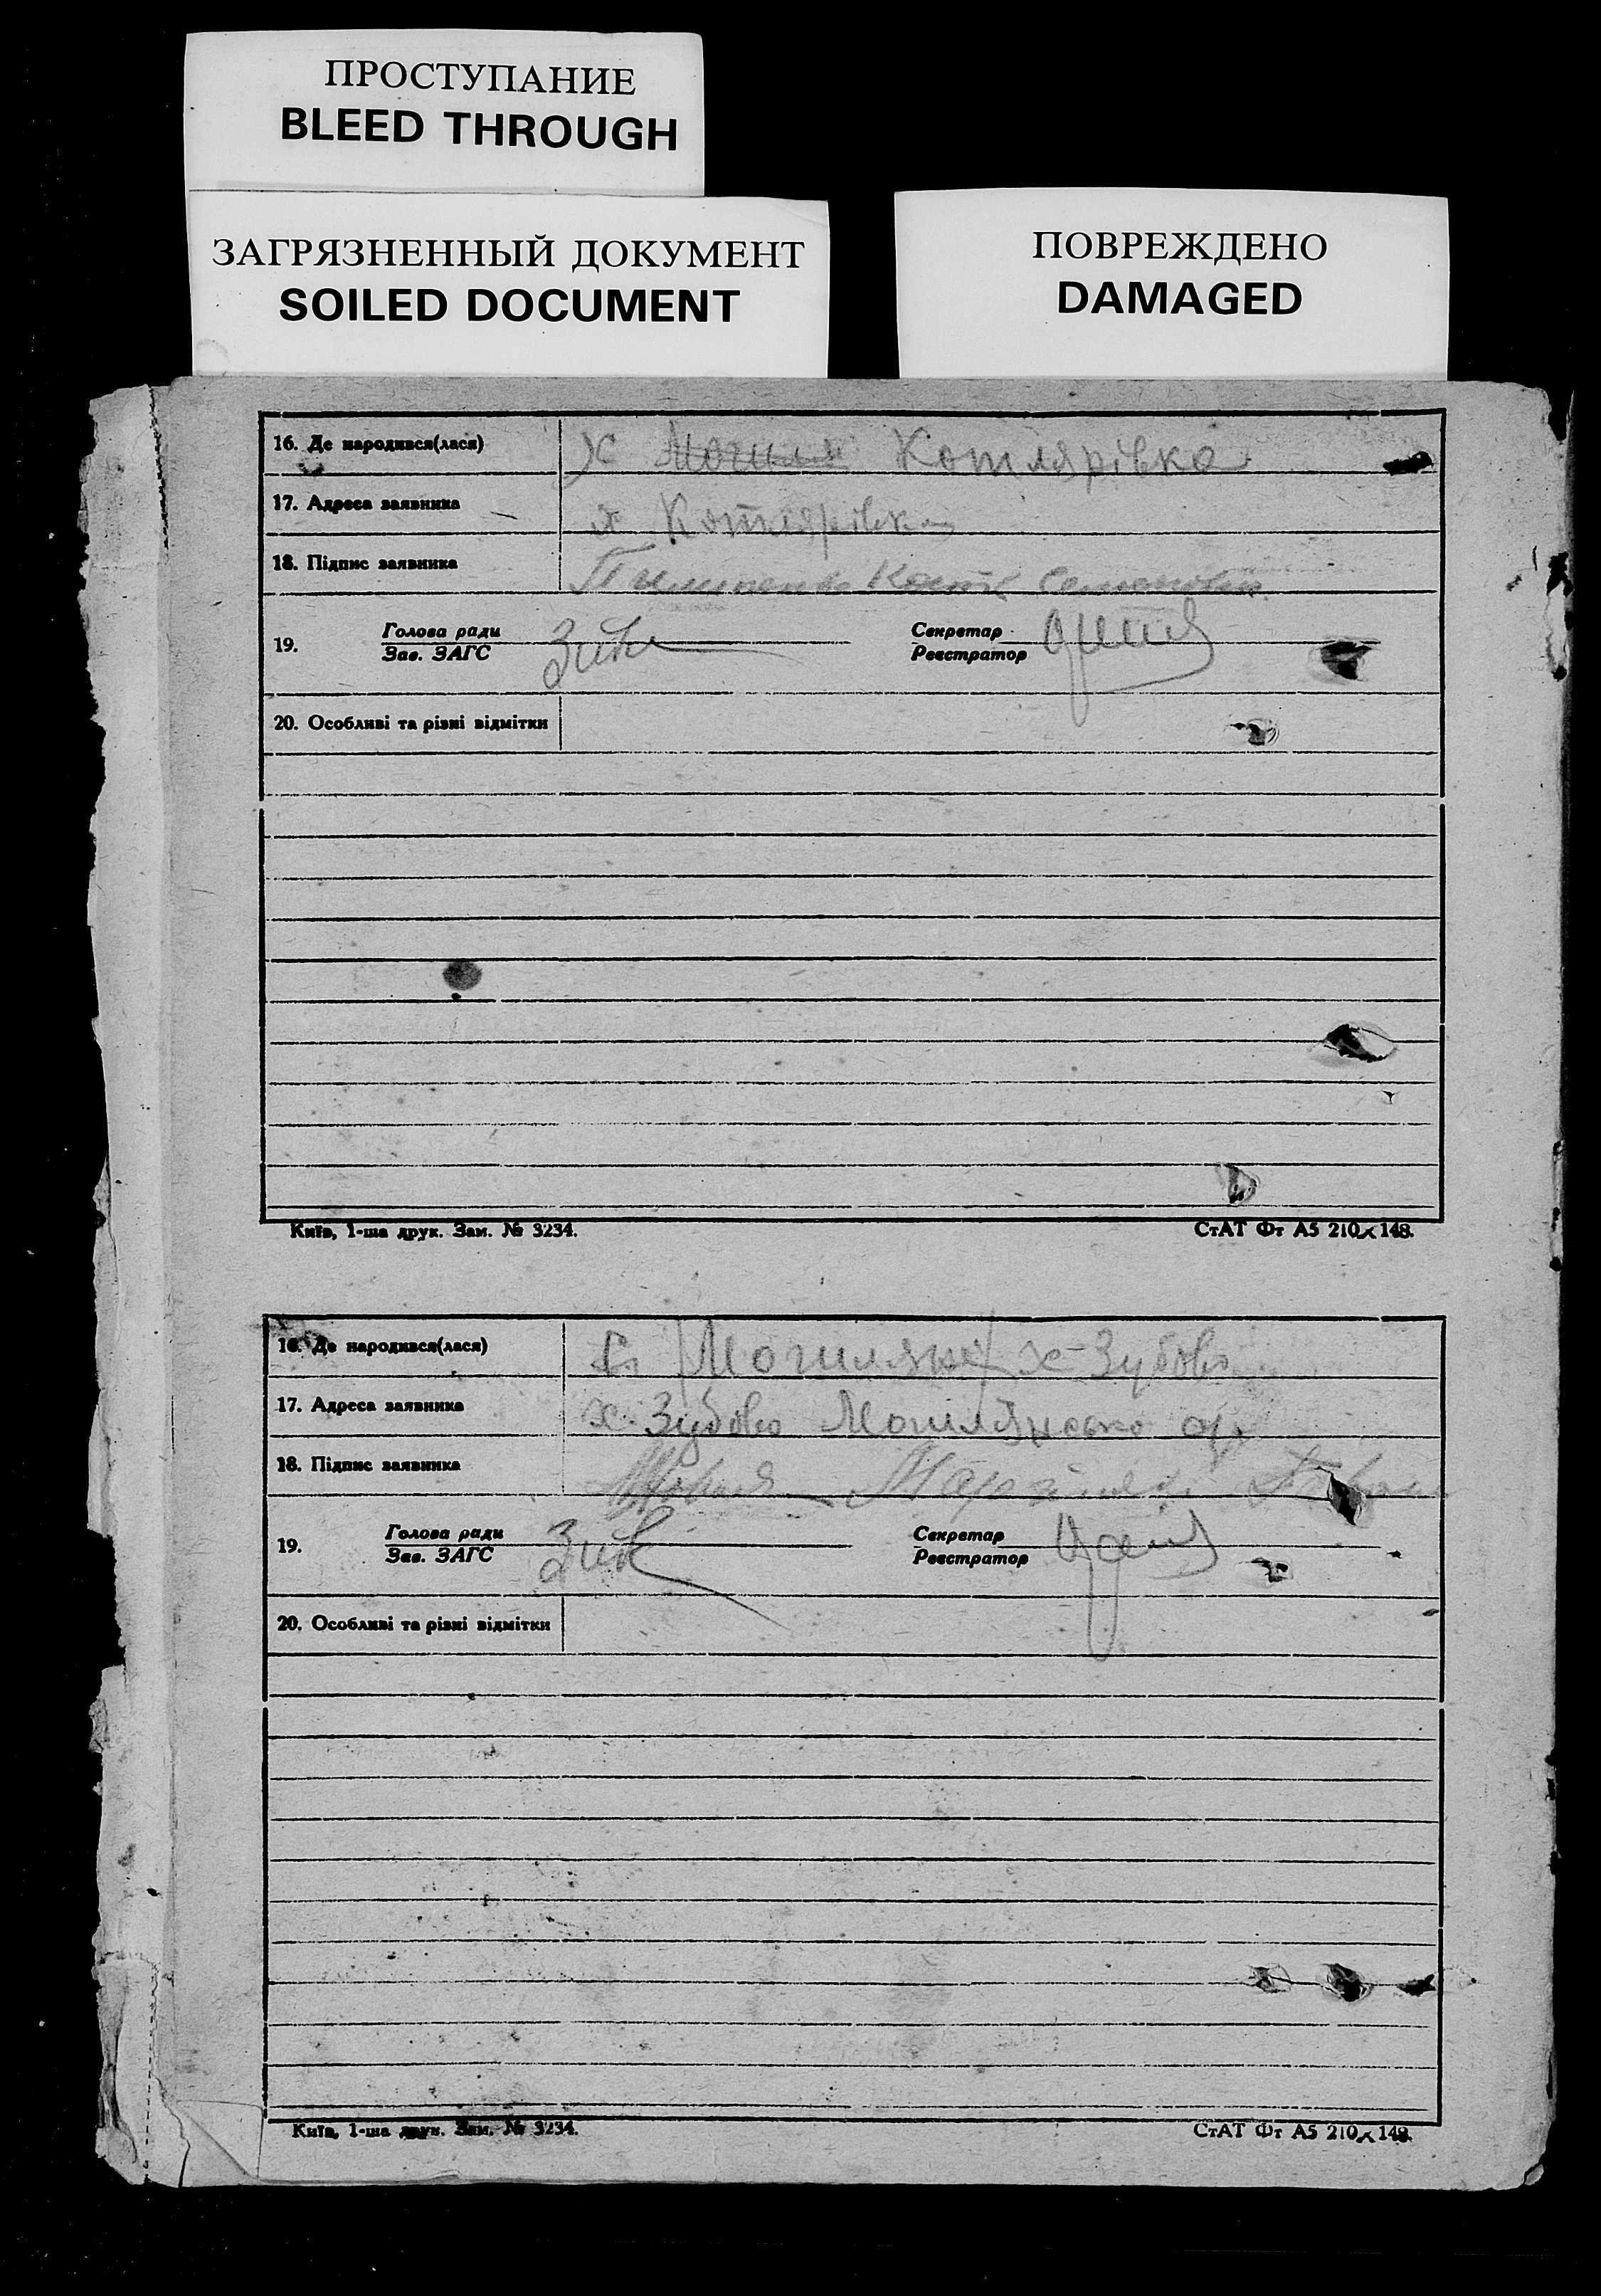 ПРОСТУПАНИЕ
BLEED THROUGH
ЗАГРЯЗНЕННЫЙ ДОКУМЕНТ
SOILED DOCUMENT
ПОВРЕЖДЕНО
DAMAGED
16. Де народився(лася) х Котлярівка
17. Адреса заявника х Котлярівка
18. Підпис заявника
19. Голова ради Секретар
Зав. ЗАГС Реєстратор
20. Особливі та різні відмітки
Київ, 1-ша друк. Зам. № 3234. СтАТ Фт А5 210×148.
16. Де народився(лася) с. Могиляни х-Зубово
17. Адреса заявника х-Зубово
18. Підпис заявника
19. Голова ради Секретар
Зав. ЗАГС Реєстратор
20. Особливі та різні відмітки
Київ, 1-ша друк. Зам. № 3234. СтАТ Фт А5 210×148.